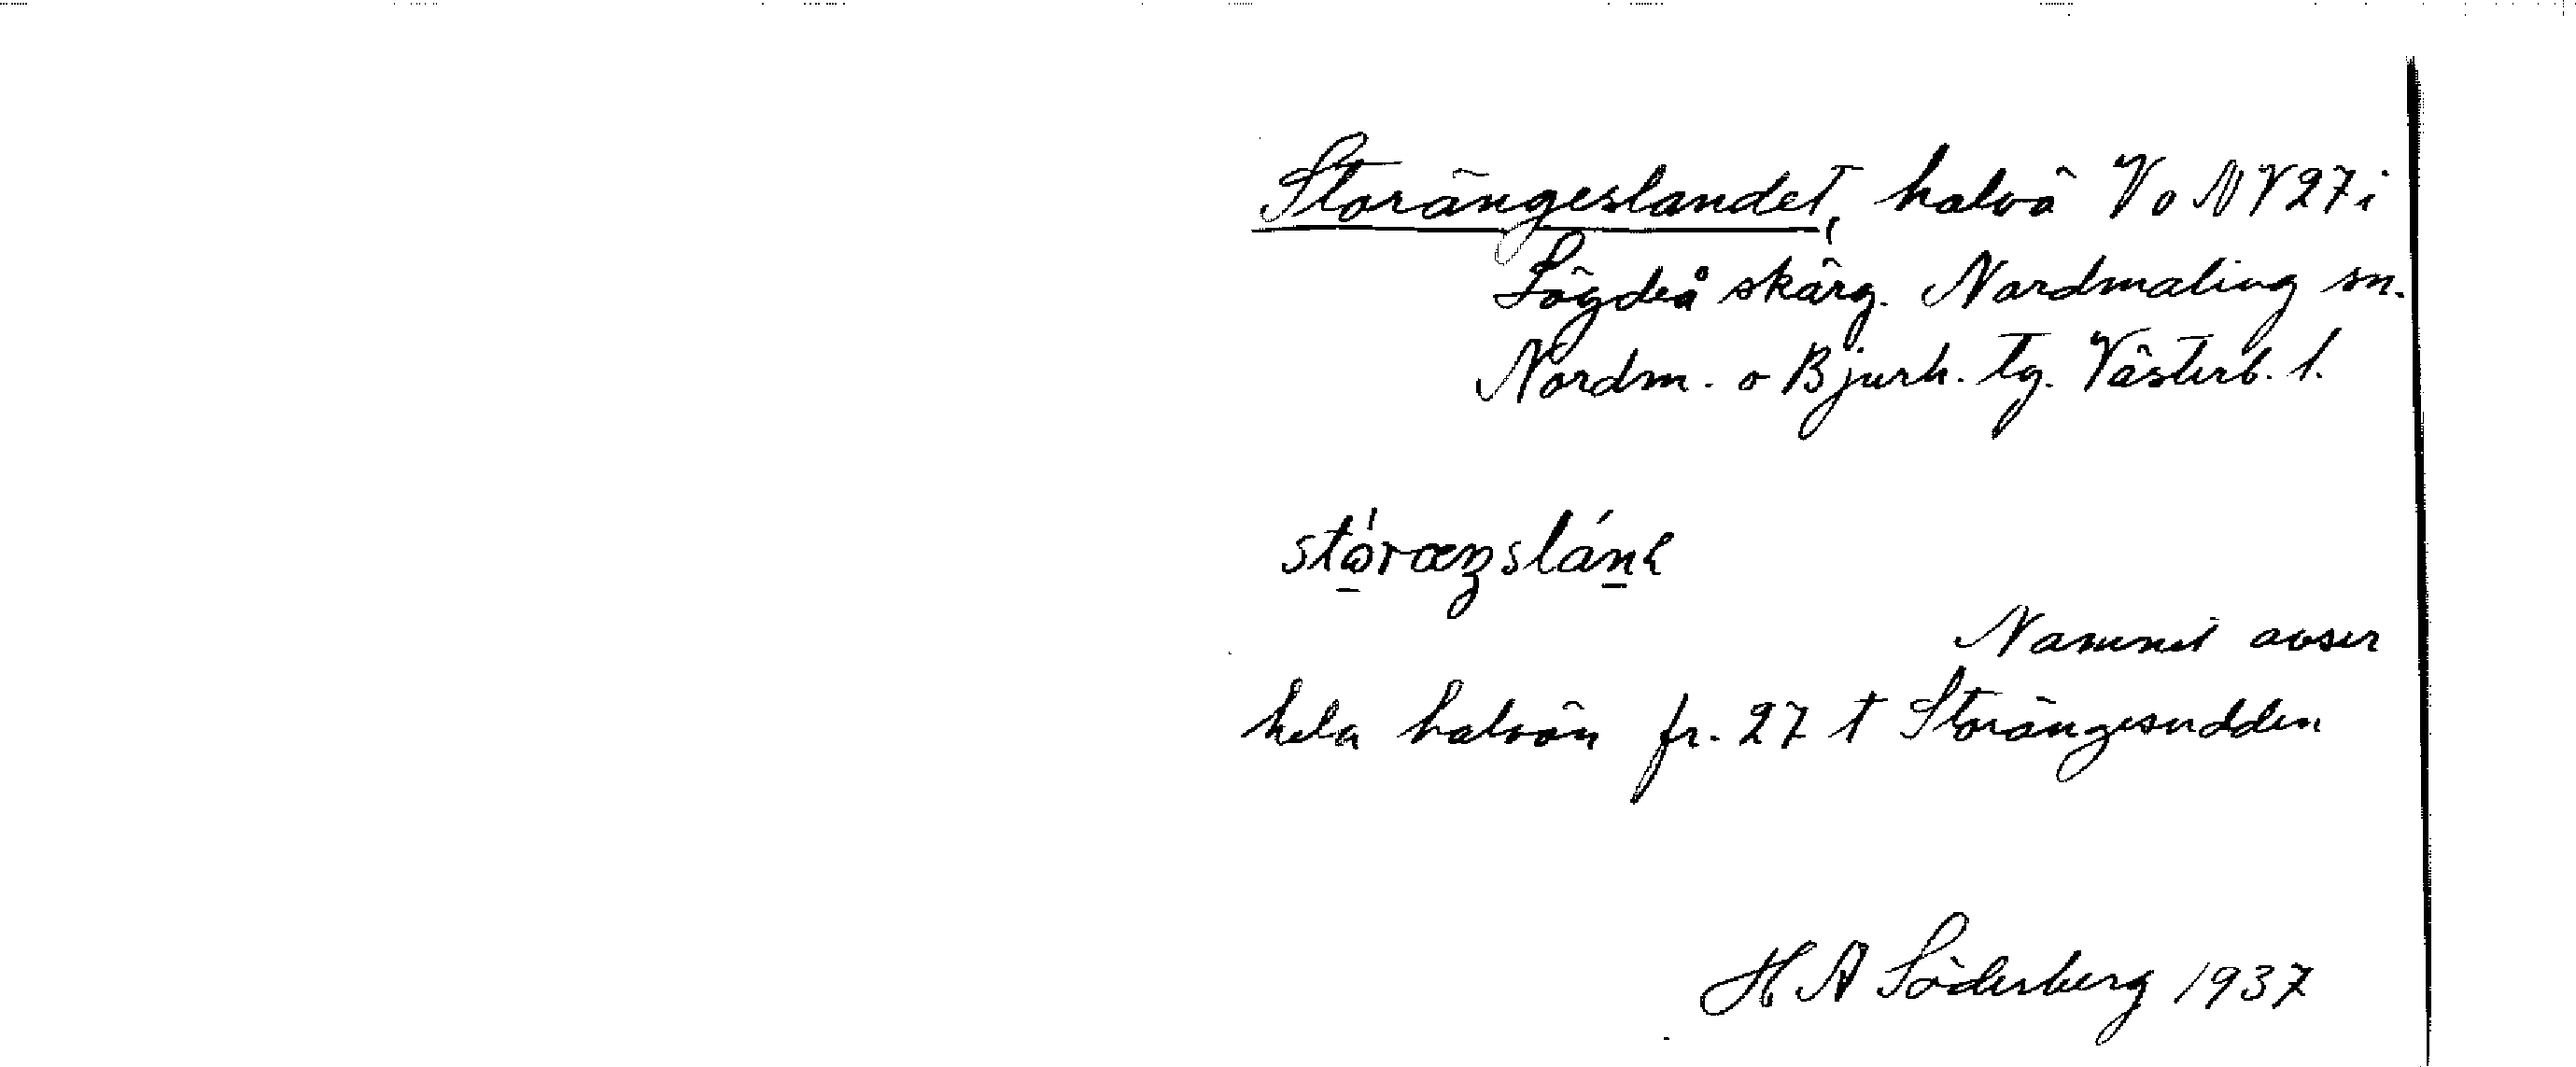 Storängeslandet, halvö V o NV 27 i
Lögdeå skärg. Nordmaling sn.
Nordm. o Bjurh. tg. Västerb. l.
Namnet avser
hela halvön fr. 27 t Storängesudden
H A Söderberg 1937